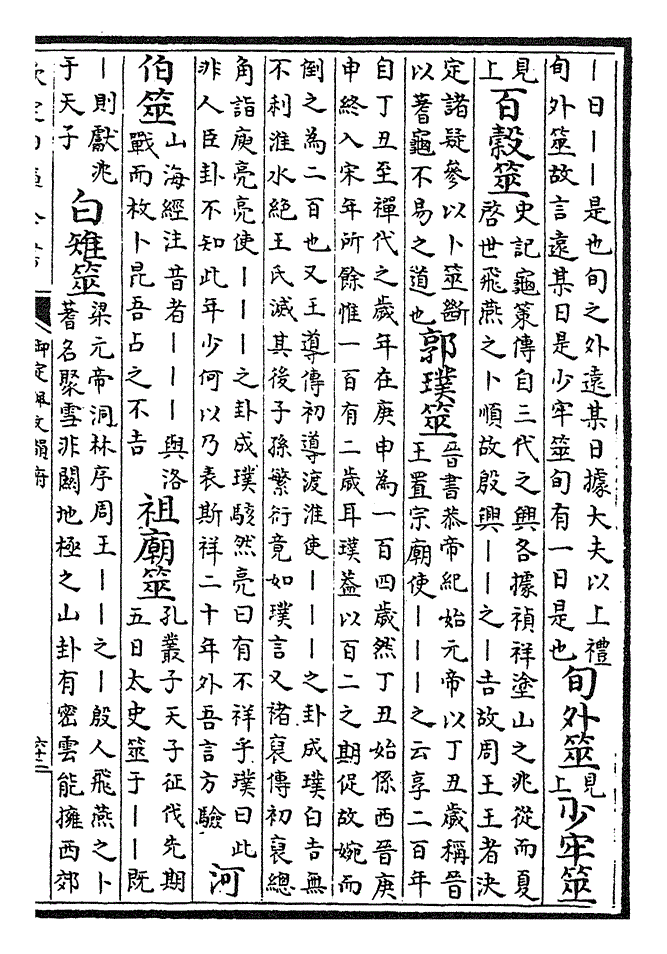 丨日丨丨是也旬之外遠某日據大夫以上禮
旬外筮故言遠某日是少牢筮旬有一日是也
旬外筮
見上
少牢筮
見上
百穀筮
史記龜策傳自三代之興各據禎祥塗山之兆從而夏
啓世飛燕之卜順故殷興丨丨之丨吉故周王王者決
定諸疑參以卜筮斷
以蓍龜不易之道也
郭璞筮
晉書恭帝紀始元帝以丁丑歲稱晉
王置宗廟使丨丨丨之云享二百年
自丁丑至禪代之歲年在庚申為一百四歲然丁丑始係西晉庚
申終入宋年所餘惟一百有二歲耳璞葢以百二之期促故婉而
倒之為二百也又王導傳初導渡淮使丨丨丨之卦成璞曰吉無
不利淮水絕王氏滅其後子孫繁衍竟如璞言又禇裒傳初裒總
角詣庾亮亮使丨丨丨之卦成璞駭然亮曰有不祥乎璞曰此
非人臣卦不知此年少何以乃表斯祥二十年外吾言方驗
河
伯筮
山海經注昔者丨丨丨與洛
戰而枚卜昆吾占之不吉
祖廟筮
孔叢子天子征伐先期
五日太史筮于丨丨既
丨則獻兆
于天子
白雉筮
梁元帝洞林序周王丨丨之丨殷人飛燕之卜
蓍名聚雪非闗地極之山卦有密雲能擁西郊
欽定四庫全書
御定佩文韻府